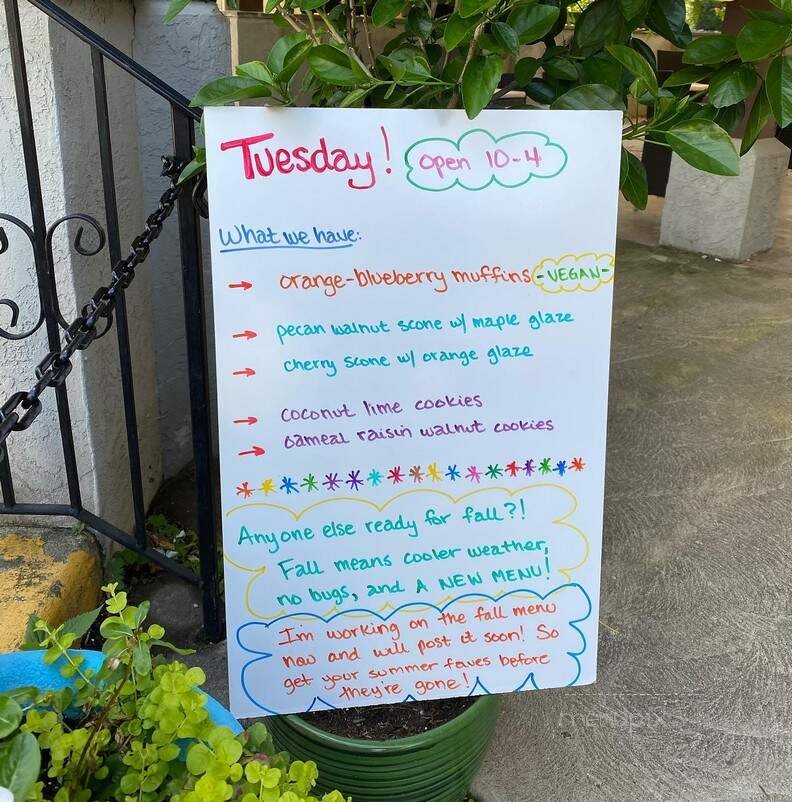 Tuesday! Open 10-4
What we have:
→ orange-blueberry muffins -VEGAN-
→ pecan walnut scone w/ maple glaze
→ cherry scone w/ orange glaze
→ coconut lime cookies
→ oameal raisin walnut cookies
Anyone else ready for fall?!
Fall means cooler weather,
no bugs, and A NEW MENU!
I'm working on the fall menu
now and will post it soon! So
get your summer faves before
they're gone!
menupix